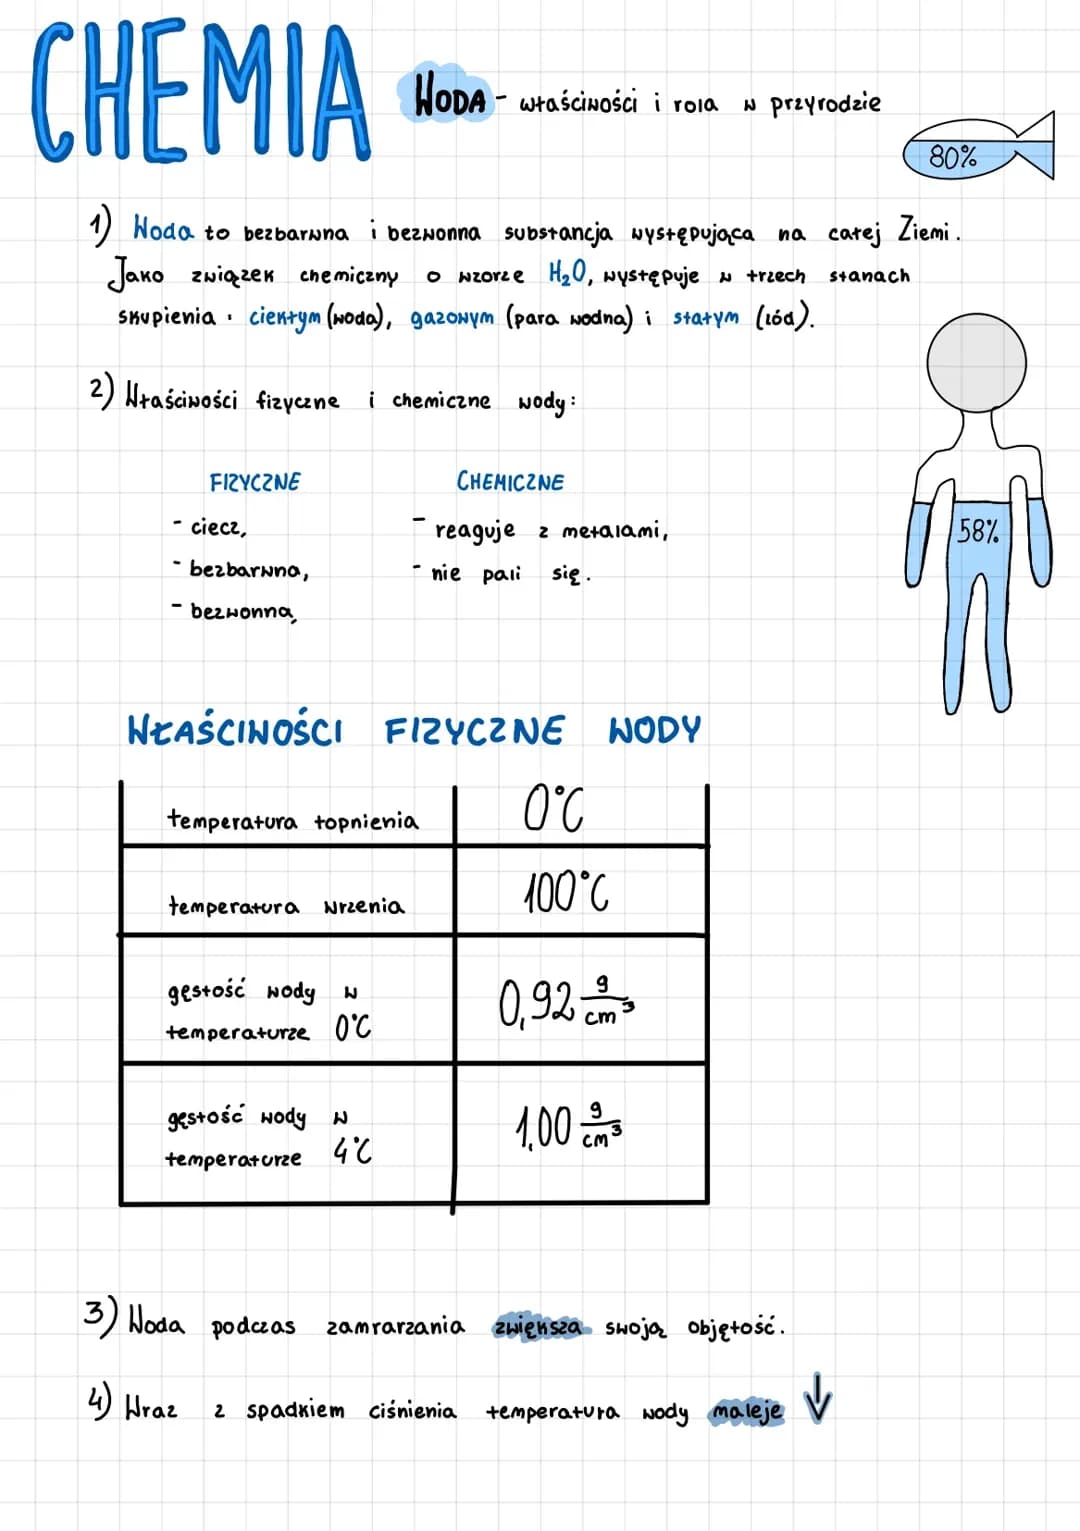 CHEMIA
WODA - właściwości i rola w przyrodzie
80%
1) Woda to bezbarwna i bezwonna substancja występująca na całej Ziemi.
Jako związek chemiczny o wzorze H₂O, występuje w trzech stanach
skupienia: ciekłym (woda), gazowym (para wodna) i stałym (lód).
2) Właściwości fizyczne i chemiczne wody:
FIZYCZNE
- ciecz,
- bezbarwna,
- bezwonna,
CHEMICZNE
- reaguje z metalami,
- nie pali się.
58%
WŁAŚCIWOŚCI FIZYCZNE WODY
temperatura topnienia 0°C
temperatura wrzenia 100°C
gęstość wody w
temperaturze 0°C
0,92 g/cm³
gęstość wody w
temperaturze 4°C
1,00 g/cm³
3) Woda podczas zamrarzania zwiększa swoją objętość.
4) Wraz z spadkiem ciśnienia temperatura wody maleje ↓